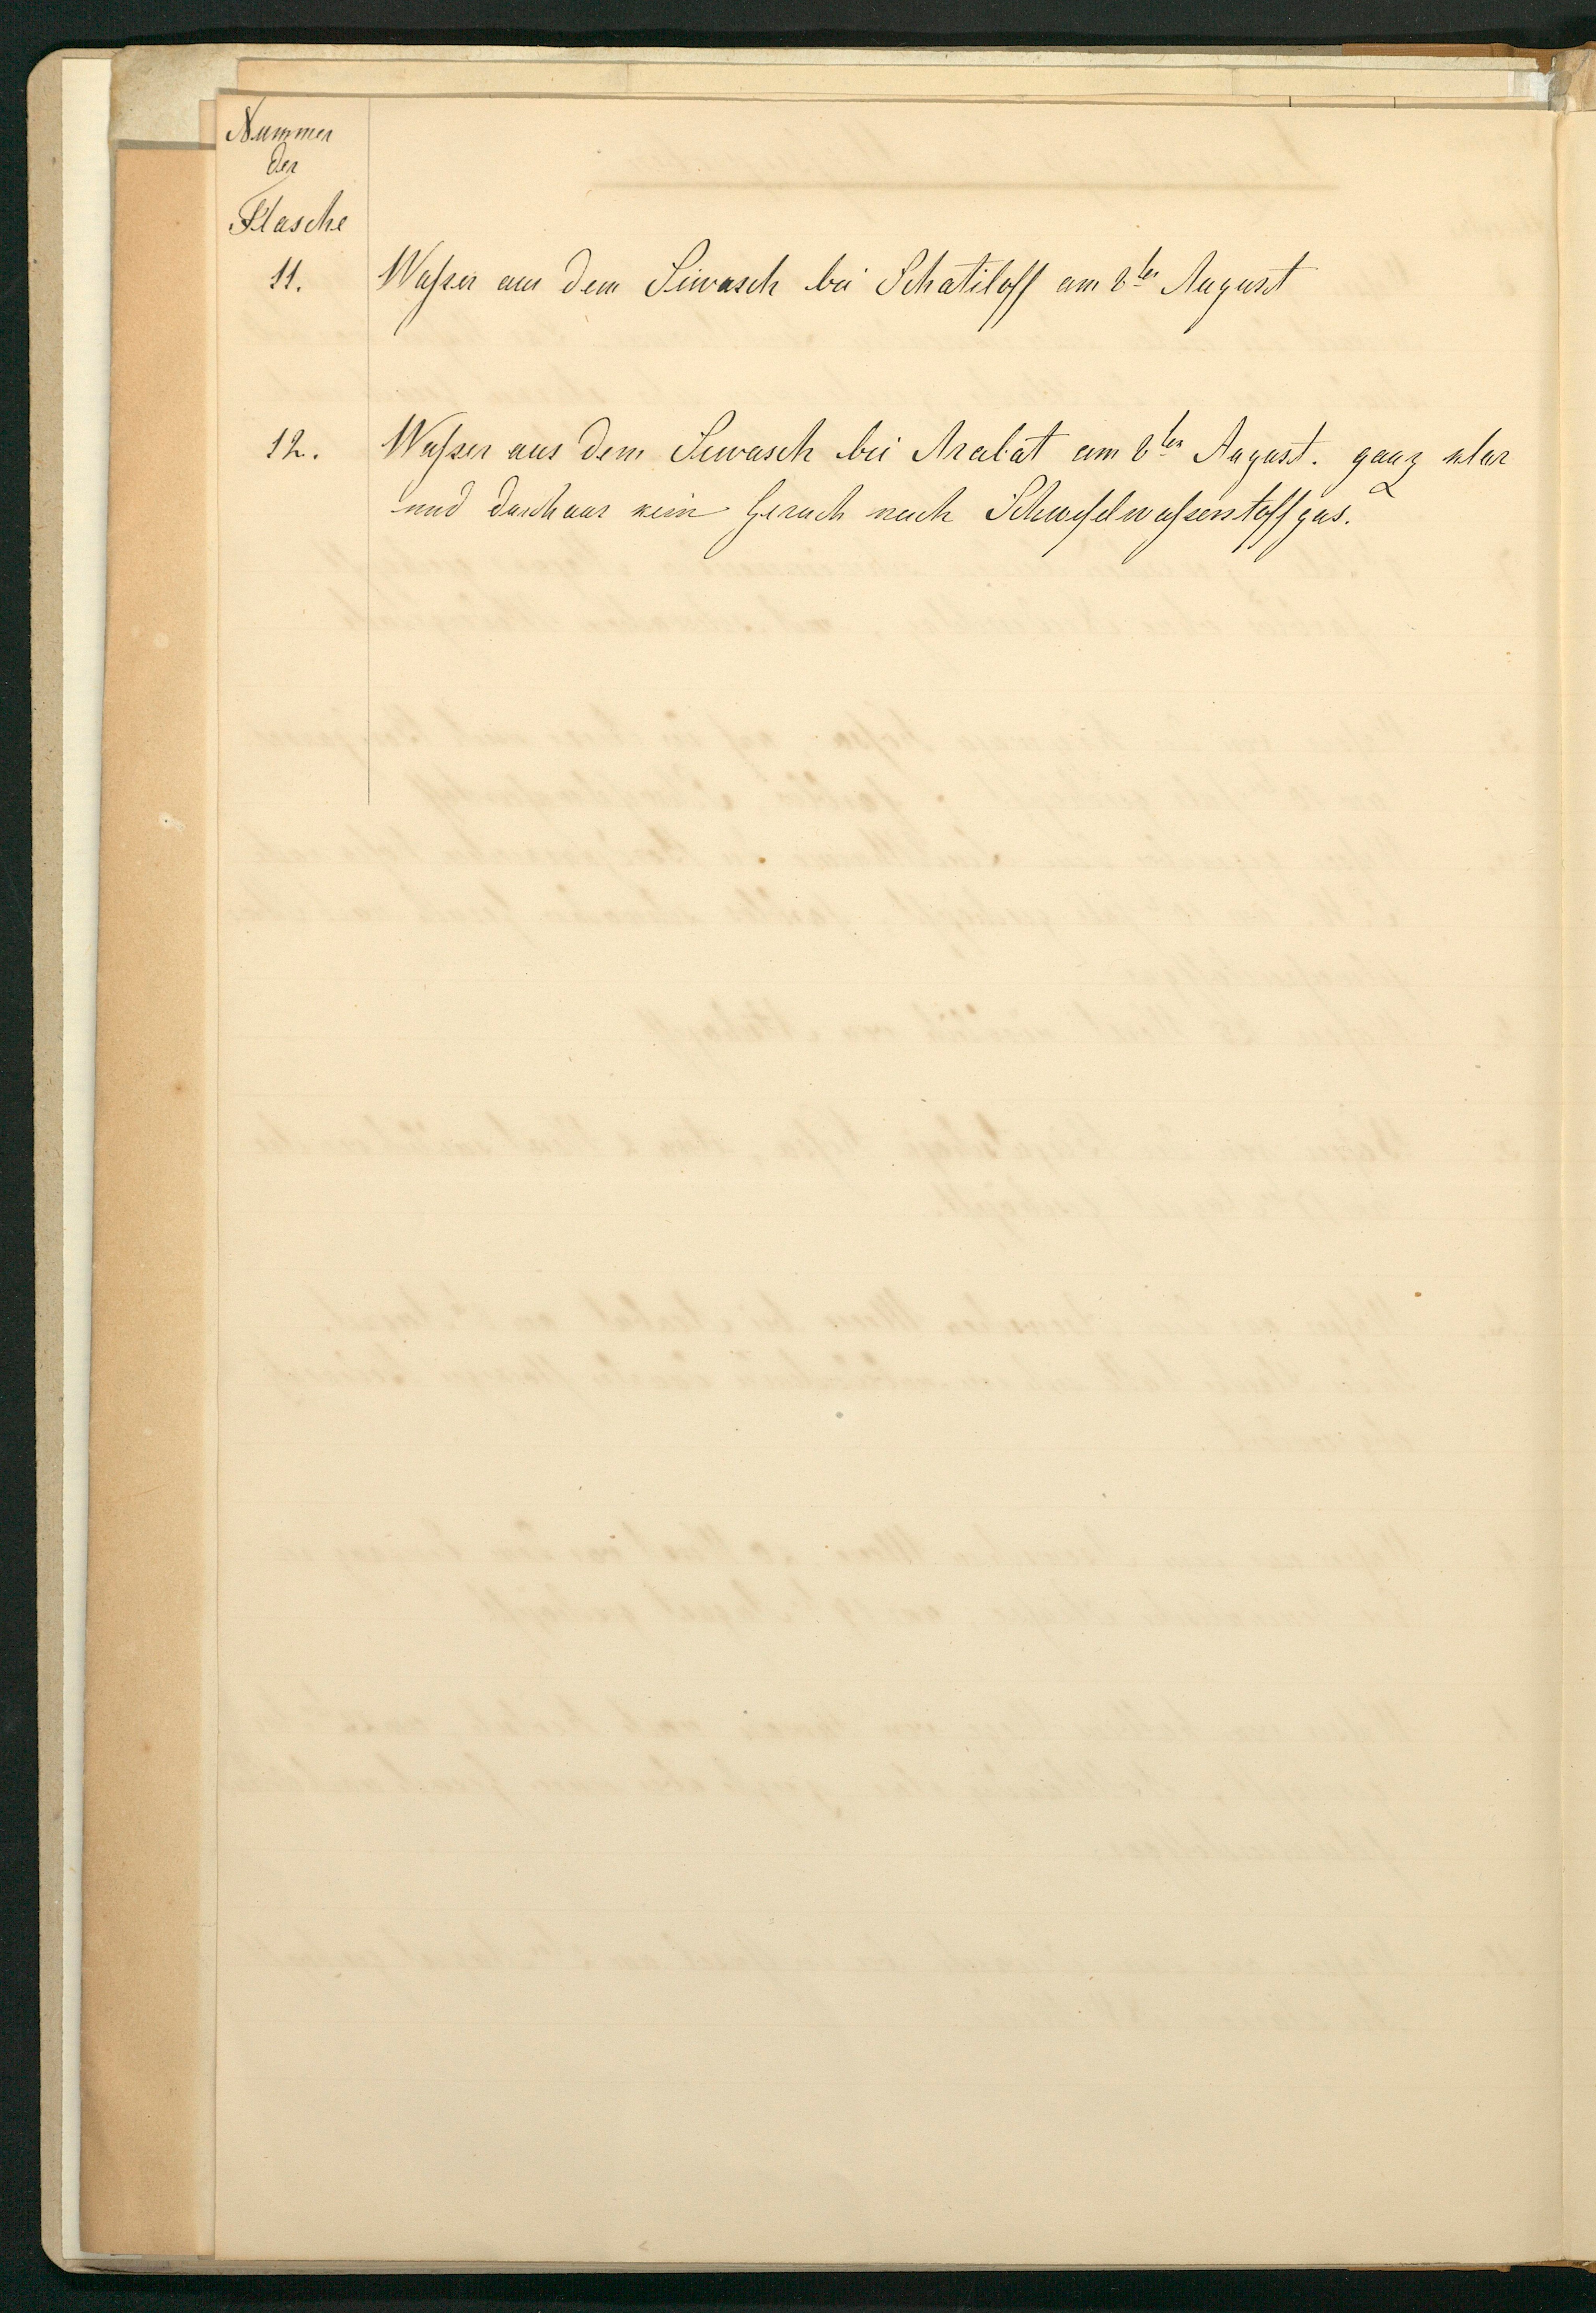 Nummer
der
Flasche
11. Waßer aus dem Siwasch bei Schatiloff am 8ten August
12. Waßer aus dem Siwasch bei Arabat am 8ten August. ganz klar
und durchaus kein Geruch nach Schwefelwaßerstoffgas.